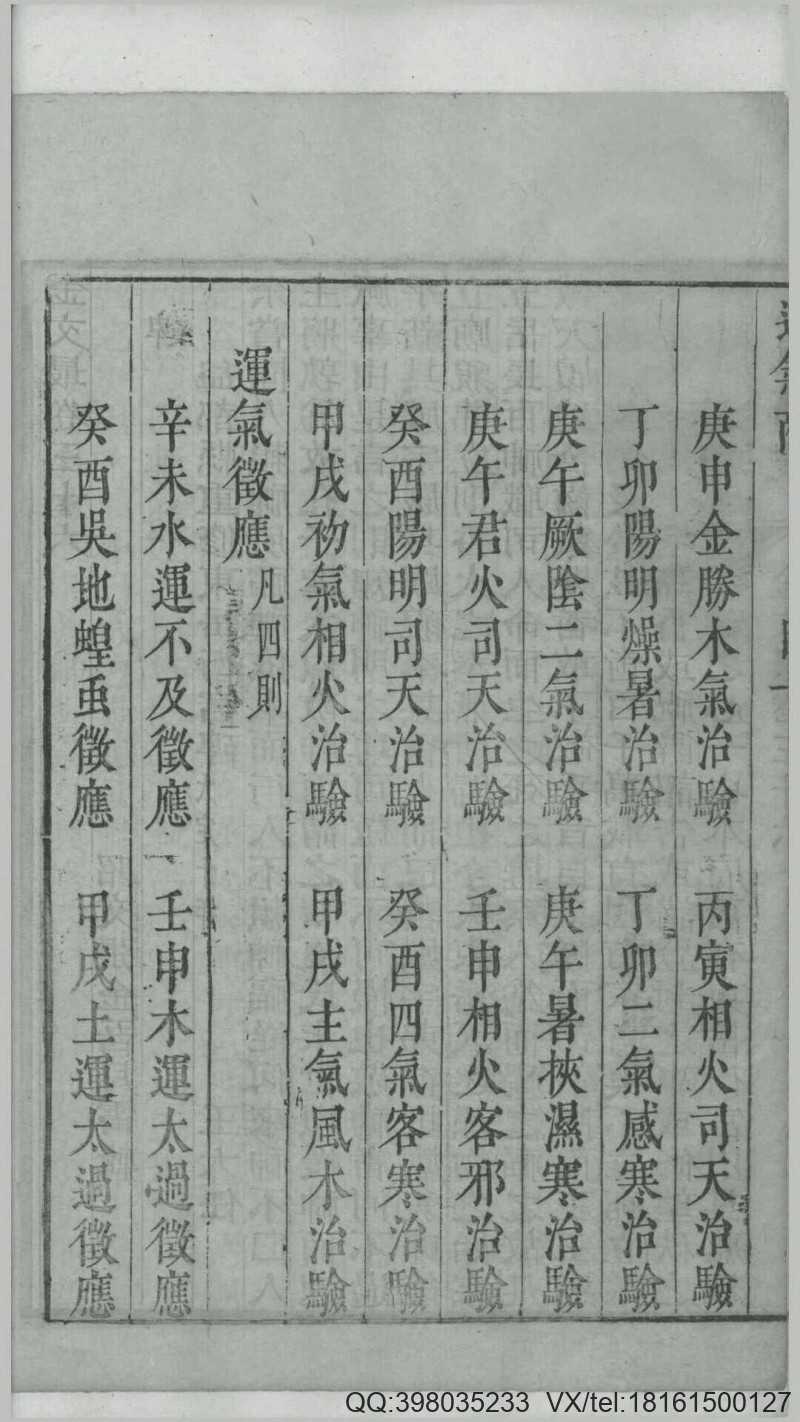 庚申金勝木氣治驗　丙寅相火司天治驗
丁卯陽明燥暑治驗　丁卯二氣感寒治驗
庚午厥陰二氣治驗　庚午暑挾濕寒治驗
庚午君火司天治驗　壬申相火客邪治驗
癸酉陽明司天治驗　癸酉四氣客寒治驗
甲戌初氣相火治驗　甲戌主氣風木治驗
運氣徵應凡四則
辛未水運不及徵應　壬申木運太過徵應
癸酉吳地蝗虫徵應　甲戌土運太過徵應
QQ:398035233 VX/tel:18161500127